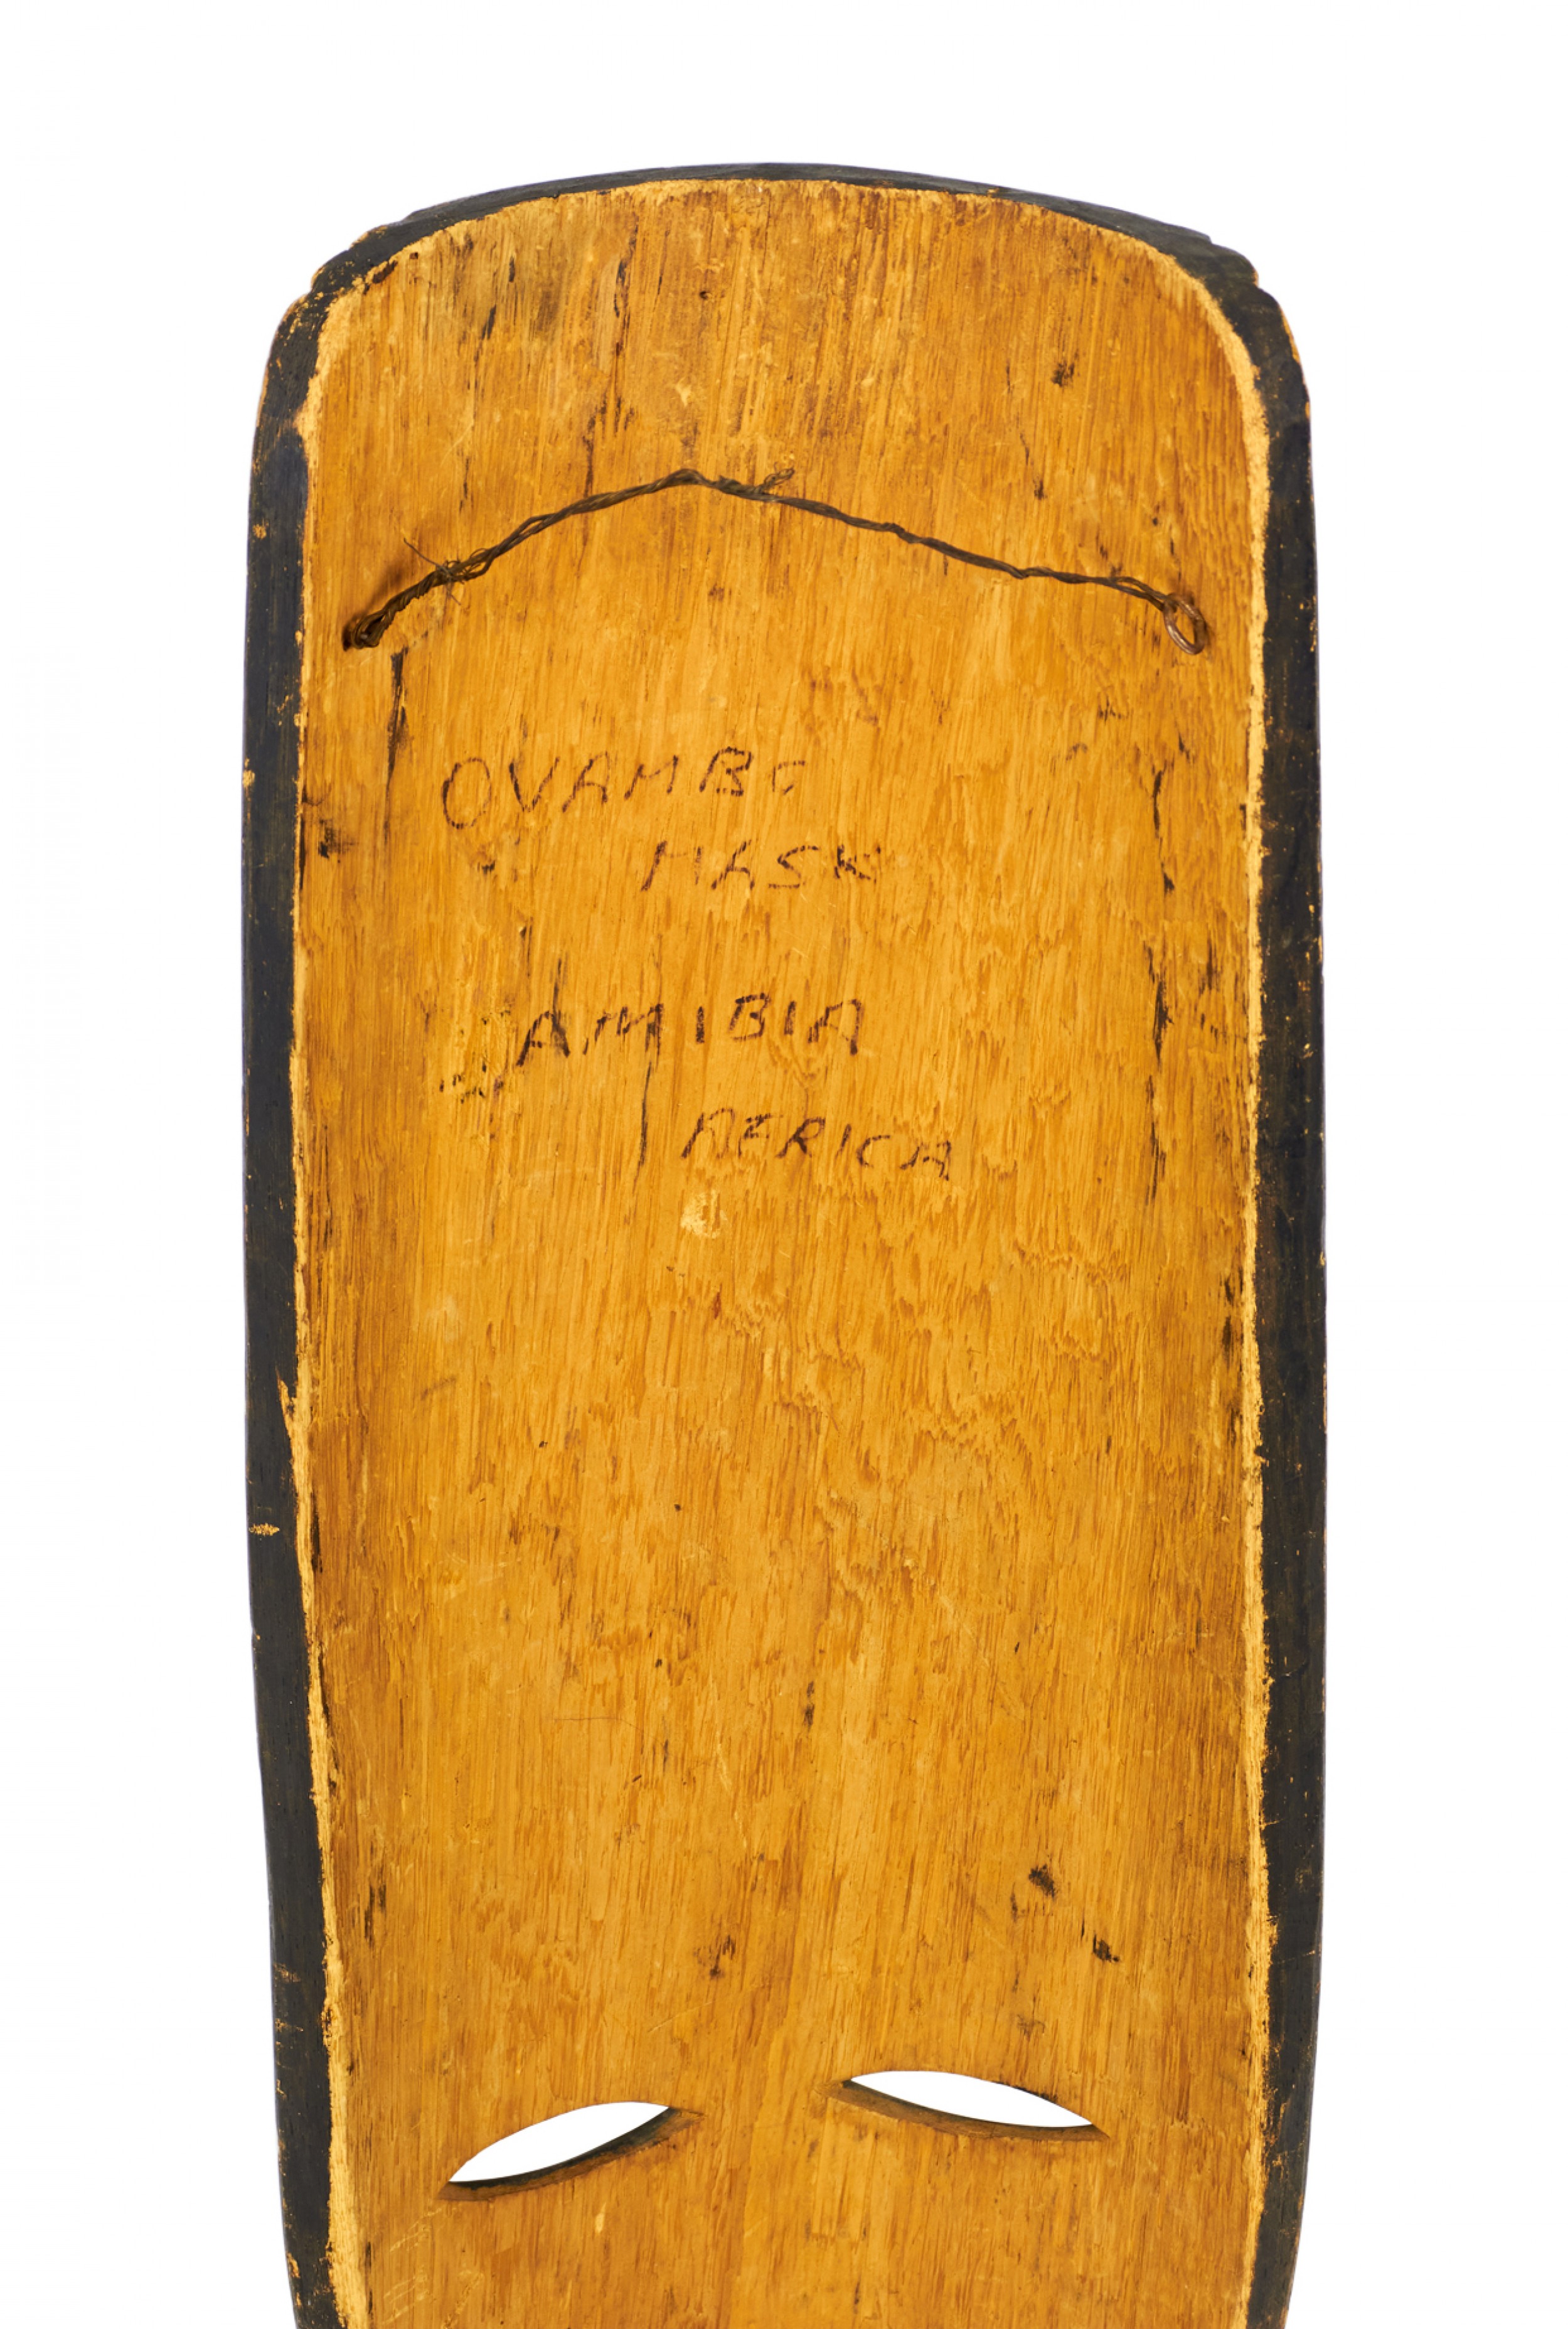 OVAMBO
MASK
NAMIBIA
AFRICA